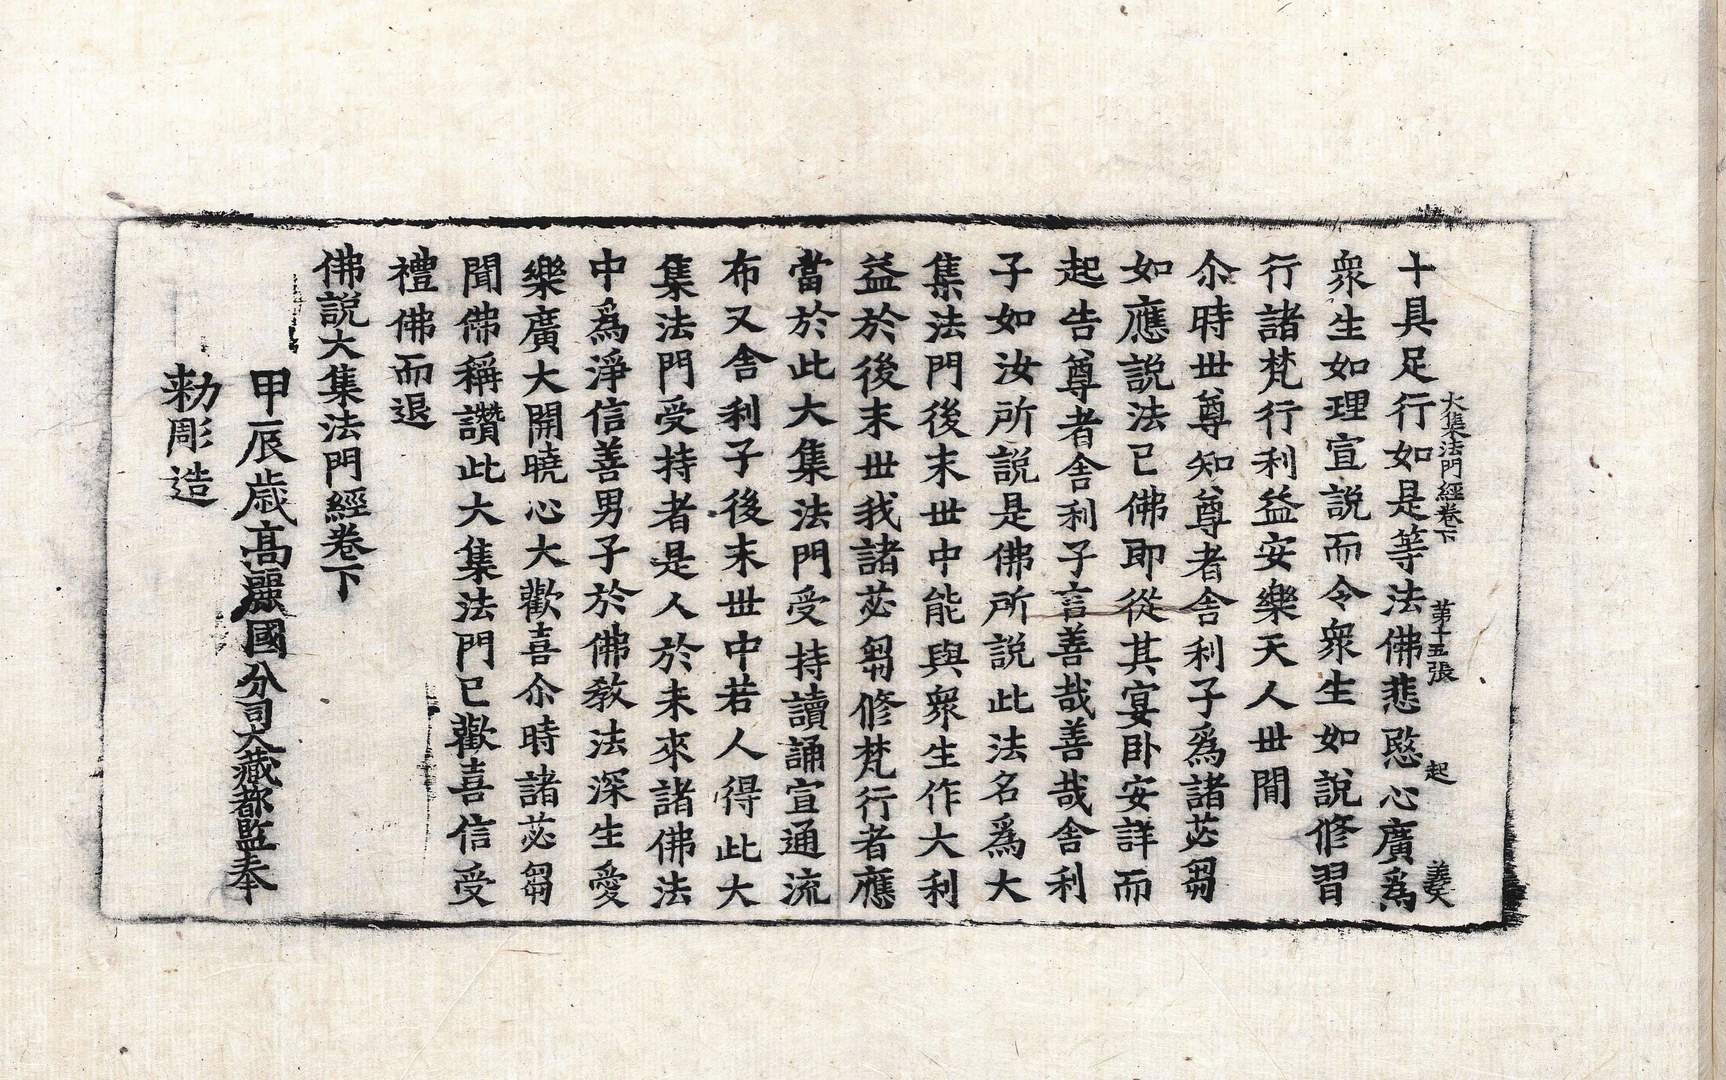 大集法門經卷下 第十五張 起 義文
十具足行如是等法佛悲愍心廣爲
衆生如理宣說而令衆生如說修習
行諸梵行利益安樂天人世間
尒時世尊知尊者舍利子爲諸苾芻
如應說法已佛即從其宴卧安詳而
起告尊者舍利子言善哉善哉舍利
子如汝所說是佛所說此法名爲大
集法門後末世中能與衆生作大利
益於後末世我諸苾芻修梵行者應
當於此大集法門受持讀誦宣通流
布又舍利子後末世中若人得此大
集法門受持者是人於未來諸佛法
中爲淨信善男子於佛教法深生愛
樂廣大開曉心大歡喜尒時諸苾芻
聞佛稱讚此大集法門已歡喜信受
禮佛而退
佛說大集法門經卷下
甲辰歲高麗國分司大藏都監奉
勑彫造